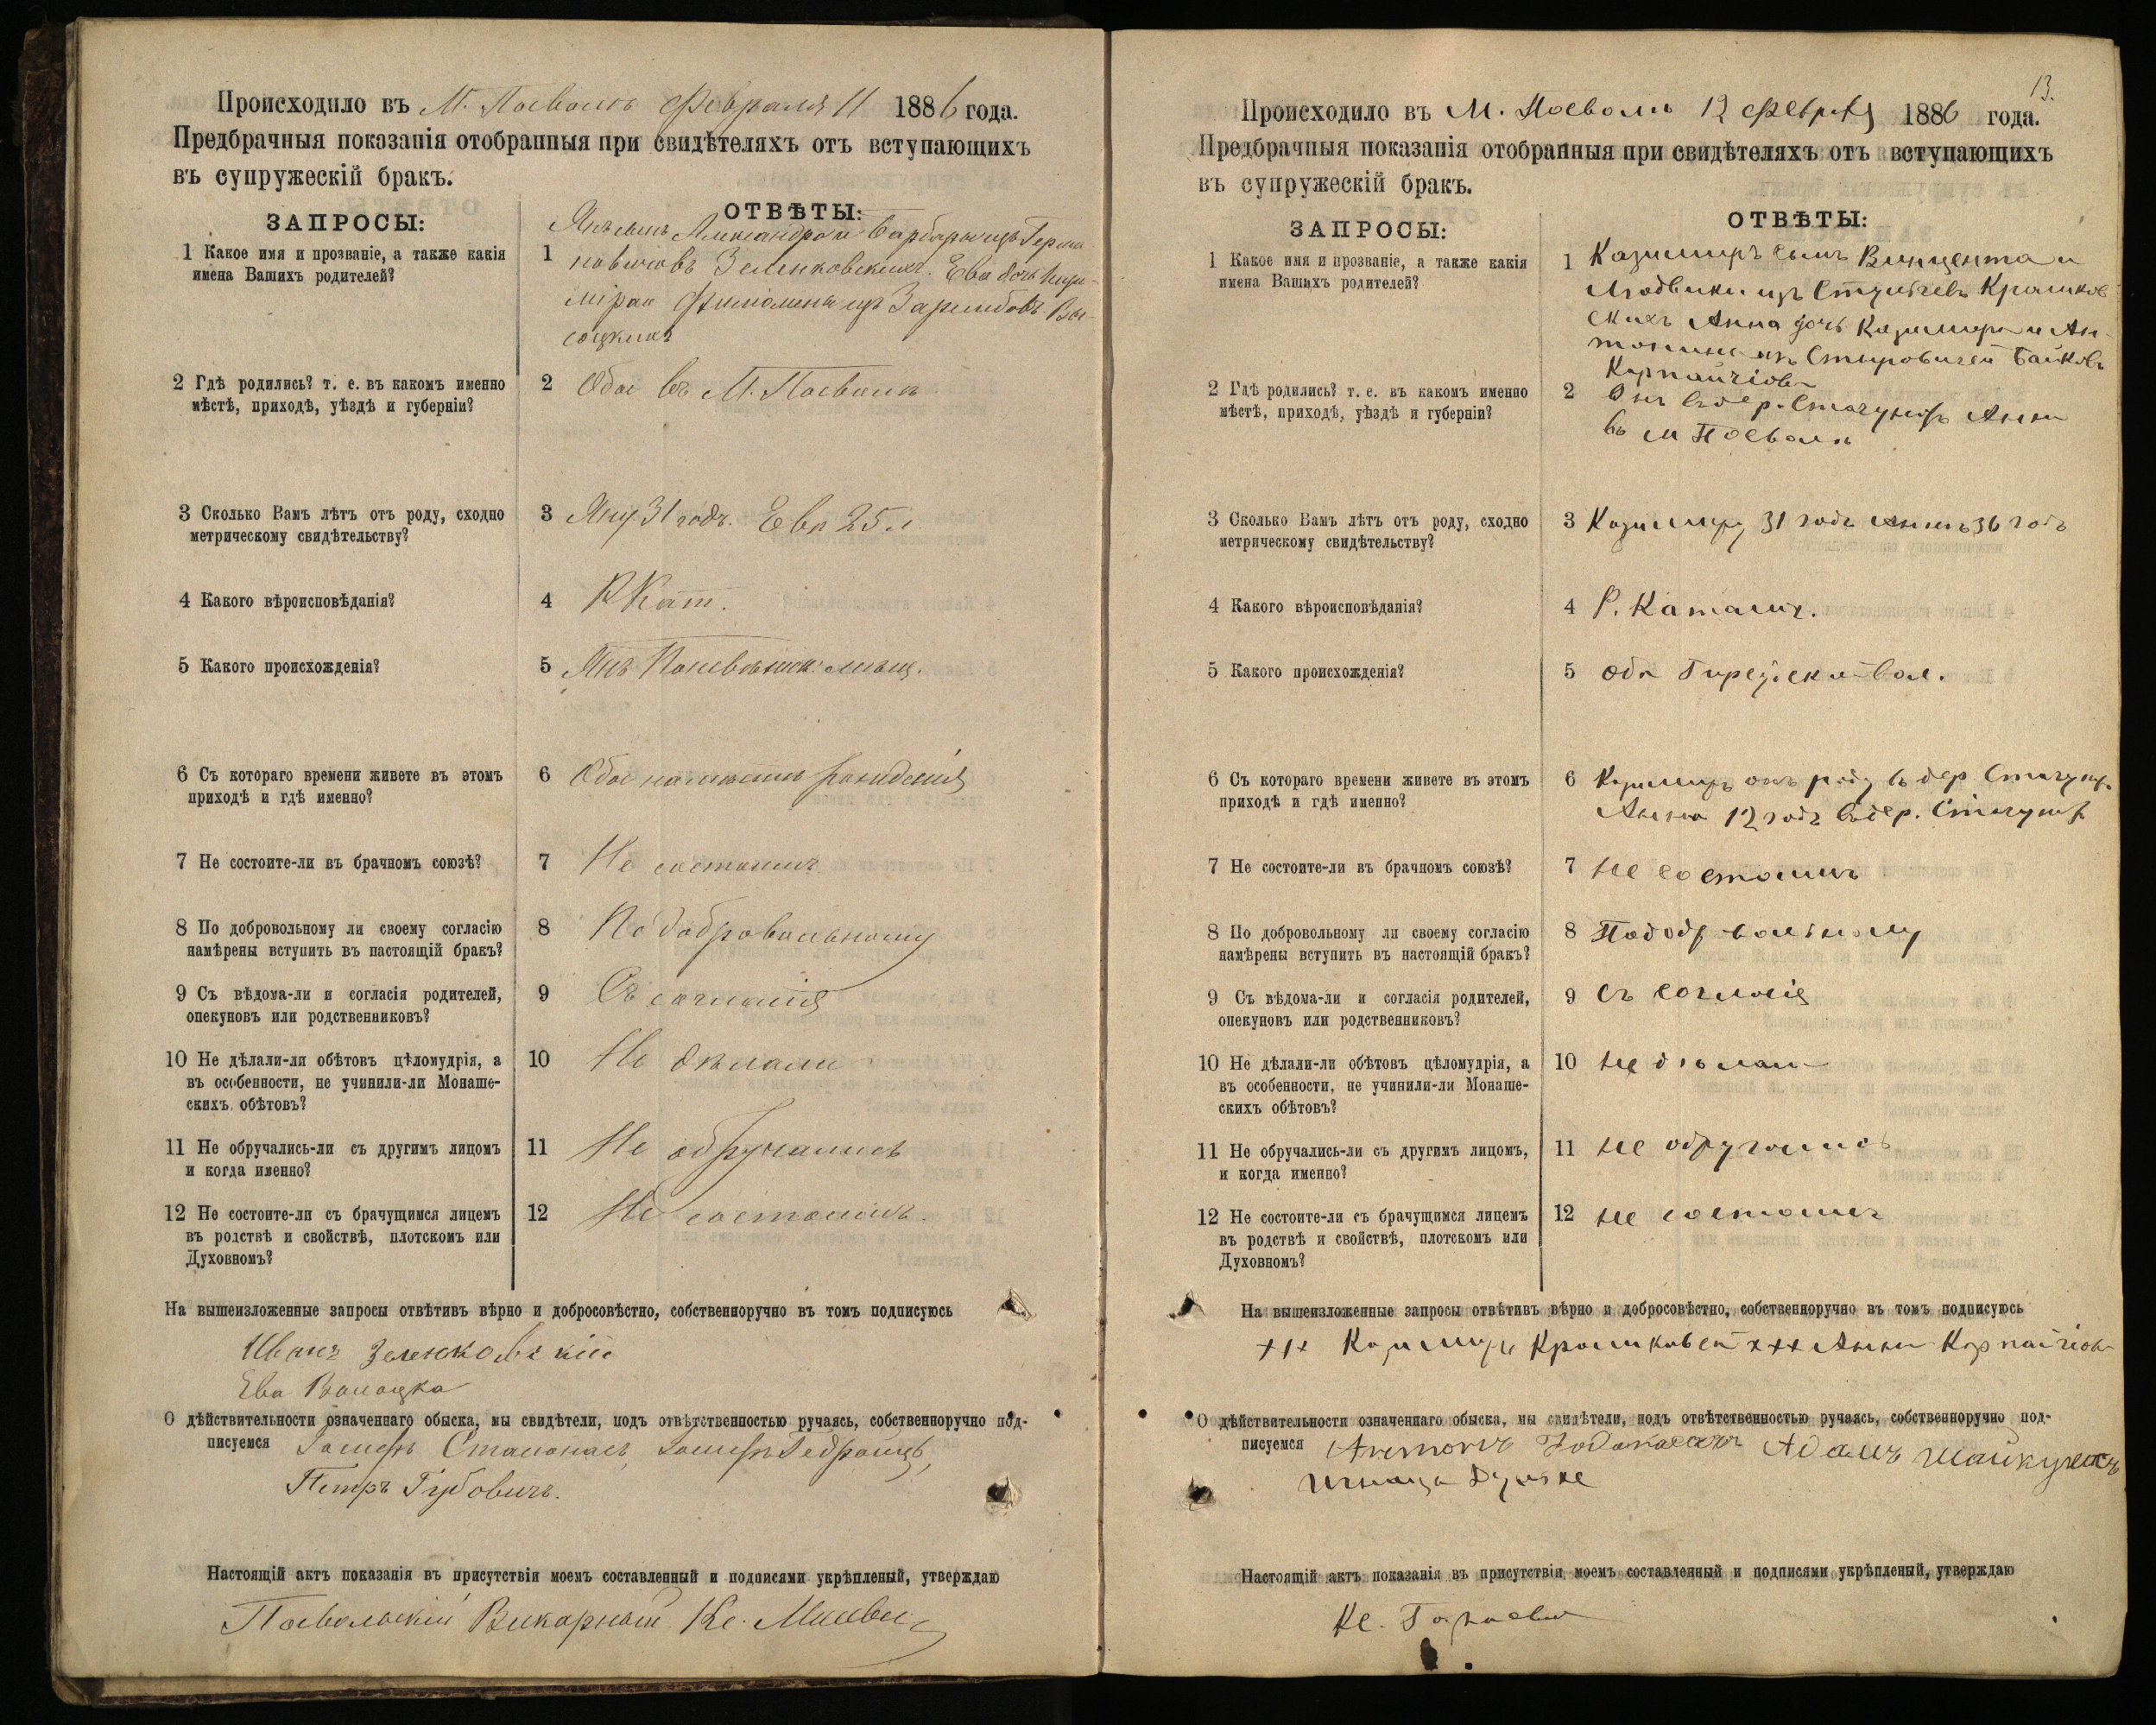 Происходило въ М. Посволь Февраля 11 1886 года.
Предбрачныя показанія отобранныя при свидѣтеляхъ отъ вступающихъ
въ супружескій бракъ.
ЗАПРОСЫ:
ОТВѢТЫ:
1 Какое имя и прозваніе, а также какія
имена Вашихъ родителей?
1 Янъ сынъ Александра и Барбары изъ
Зеленковскихъ. Ева дочь
и Филомены изъ Зарембовъ Вы-
соцкихъ
2 Гдѣ родились? т. е. въ какомъ именно
мѣстѣ, приходѣ, уѣздѣ и губерніи?
2 Обое въ М. Посволь
3 Сколько Вамъ лѣтъ отъ роду, сходно
метрическому свидѣтельству?
3 Яну 31 годъ. Евѣ 25 л.
4 Какого вѣроисповѣданія?
4 Р Кат.
5 Какого происхожденія?
5 Янъ Поневѣжск. мѣщ.
6 Съ котораго времени живете въ этомъ
приходѣ и гдѣ именно?
6 Обое на мѣстѣ рожденія
7 Не состоите-ли въ брачномъ союзѣ?
7 Не состоимъ
8 По добровольному ли своему согласію
намѣрены вступить въ настоящій бракъ?
8 По добровольному
9 Съ вѣдома-ли и согласія родителей,
опекуновъ или родственниковъ?
9 Съ согласія
10 Не дѣлали-ли обѣтовъ цѣломудрія, а
въ особенности, не учинили-ли Монаше-
скихъ обѣтовъ?
10 Не дѣлали
11 Не обручались-ли съ другимъ лицомъ
и когда именно?
11 Не обручались
12 Не состоите-ли съ брачущимся лицемъ
въ родствѣ и свойствѣ, плотскомъ или
Духовномъ?
12 Не состоимъ.
На вышеизложенные запросы отвѣтивъ вѣрно и добросовѣстно, собственноручно въ томъ подписуюсь
Иванъ Зеленковскій
Ева
О дѣйствительности означеннаго обыска, мы свидѣтели, подъ отвѣтственностью ручаясь, собственноручно под-
писуемся
Петръ Губовичъ.
Настоящій актъ показанія въ присутствіи моемъ составленный и подписями укрѣпленый, утверждаю
Посвольскій Викарный Кс.
13.
Происходило въ М. Посволь 12 Февраля 1886 года.
Предбрачныя показанія отобранныя при свидѣтеляхъ отъ вступающихъ
въ супружескій бракъ.
ЗАПРОСЫ:
ОТВѢТЫ:
1 Какое имя и прозваніе, а также какія
имена Вашихъ родителей?
1 Казимиръ сынъ Винцента и
Людвики изъ
скихъ Анна дочь Казимира и Ан-
тонины изъ
2 Гдѣ родились? т. е. въ какомъ именно
мѣстѣ, приходѣ, уѣздѣ и губерніи?
2 Онъ въ дер. Анна
въ м Посволь
3 Сколько Вамъ лѣтъ отъ роду, сходно
метрическому свидѣтельству?
3 Казимиру 31 годъ Аннѣ 36 годъ
4 Какого вѣроисповѣданія?
4 Р. Католич.
5 Какого происхожденія?
5 Оба вол.
6 Съ котораго времени живете въ этомъ
приходѣ и гдѣ именно?
6 Казимиръ отъ роду въ дер
Анна 12 годъ въ дер.
7 Не состоите-ли въ брачномъ союзѣ?
7 Не состоимъ
8 По добровольному ли своему согласію
намѣрены вступить въ настоящій бракъ?
8 По добровольному
9 Съ вѣдома-ли и согласія родителей,
опекуновъ или родственниковъ?
9 Съ согласія
10 Не дѣлали-ли обѣтовъ цѣломудрія, а
въ особенности, не учинили-ли Монаше-
скихъ обѣтовъ?
10 Не дѣлали
11 Не обручались-ли съ другимъ лицомъ,
и когда именно?
11 Не обручались
12 Не состоите-ли съ брачущимся лицемъ
въ родствѣ и свойствѣ, плотскомъ или
Духовномъ?
12 Не состоимъ
На вышеизложенные запросы отвѣтивъ вѣрно и добросовѣстно, собственноручно въ томъ подписуюсь
+++ Казимиръ +++ Анна
О дѣйствительности означеннаго обыска, мы свидѣтели, подъ отвѣтственностью ручаясь, собственноручно под-
писуемся Адамъ
Настоящій актъ показанія въ присутствіи моемъ составленный и подписями укрѣпленый, утверждаю
Кс.